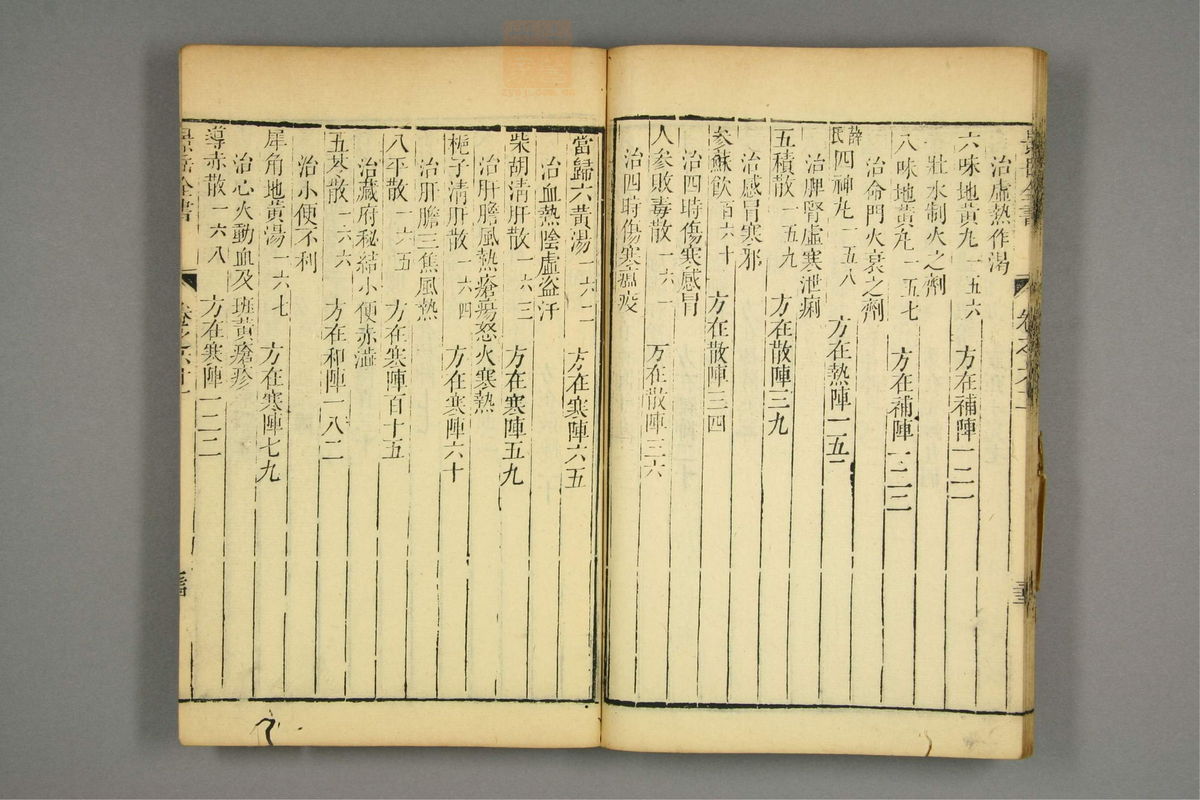 治虛熱作渴
六味地黃丸一五六 方在補陣一二一
壯水制火之劑
八味地黃丸一五七 方在補陣一二二
治命門火衰之劑
薛氏四神丸一五八 方在熱陣一五二
治脾腎虛寒泄痢
五積散一五九 方在散陣三九
治感冒寒邪
參蘇飲百六十 方在散陣三四
治四時傷寒感冒
人參敗毒散一六一 方在散陣三六
治四時傷寒瘟疫
當歸六黃湯一六二 方在寒陣六五
治血熱陰虛盜汗
柴胡清肝散一六三 方在寒陣五九
治肝膽風熱瘡瘍怒火寒熱
梔子清肝散一六四 方在寒陣六十
治肝膽三焦風熱
八平散一六五 方在寒陣百十五
治藏府秘結小便赤澁
五苓散一六六 方在和陣一八二
治小便不利
犀角地黃湯一六七 方在寒陣七九
治心火動血及斑黃瘡疹
導赤散一六八 方在寒陣一二二
景岳全書